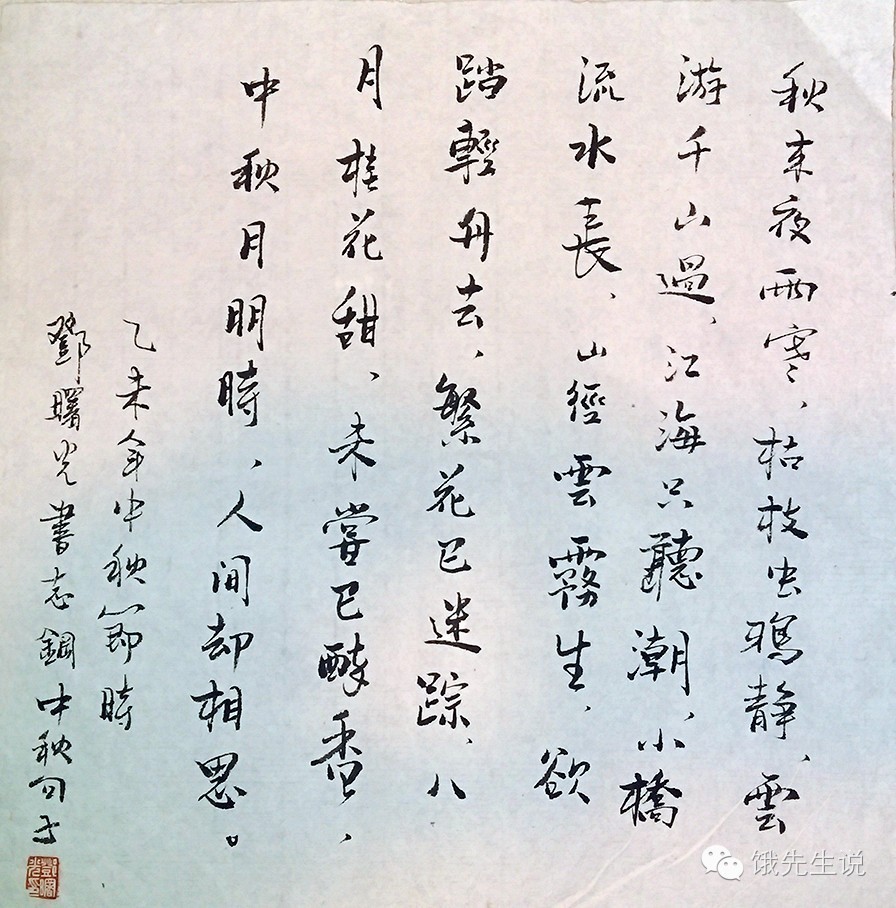 秋来夜雨寒、枯枝虫鴉静、雲
游千山過、江海只聽潮、小橋
流水長、山徑雲霧生、欲
踏輕舟去、繁花已迷踪、八
月桂花甜、未嘗已醉香、
中秋月明時、人间却相思。
乙未年中秋節時
鄧曙光書志鋼中秋句
饿先生说